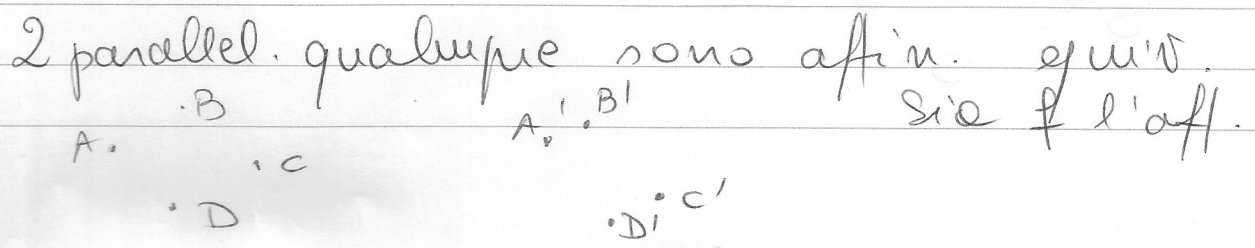 2 parallel. qualunque sono affin. equiv.
.B A.' .B' Sia f l'aff.
A. .C
.D .D' .C'